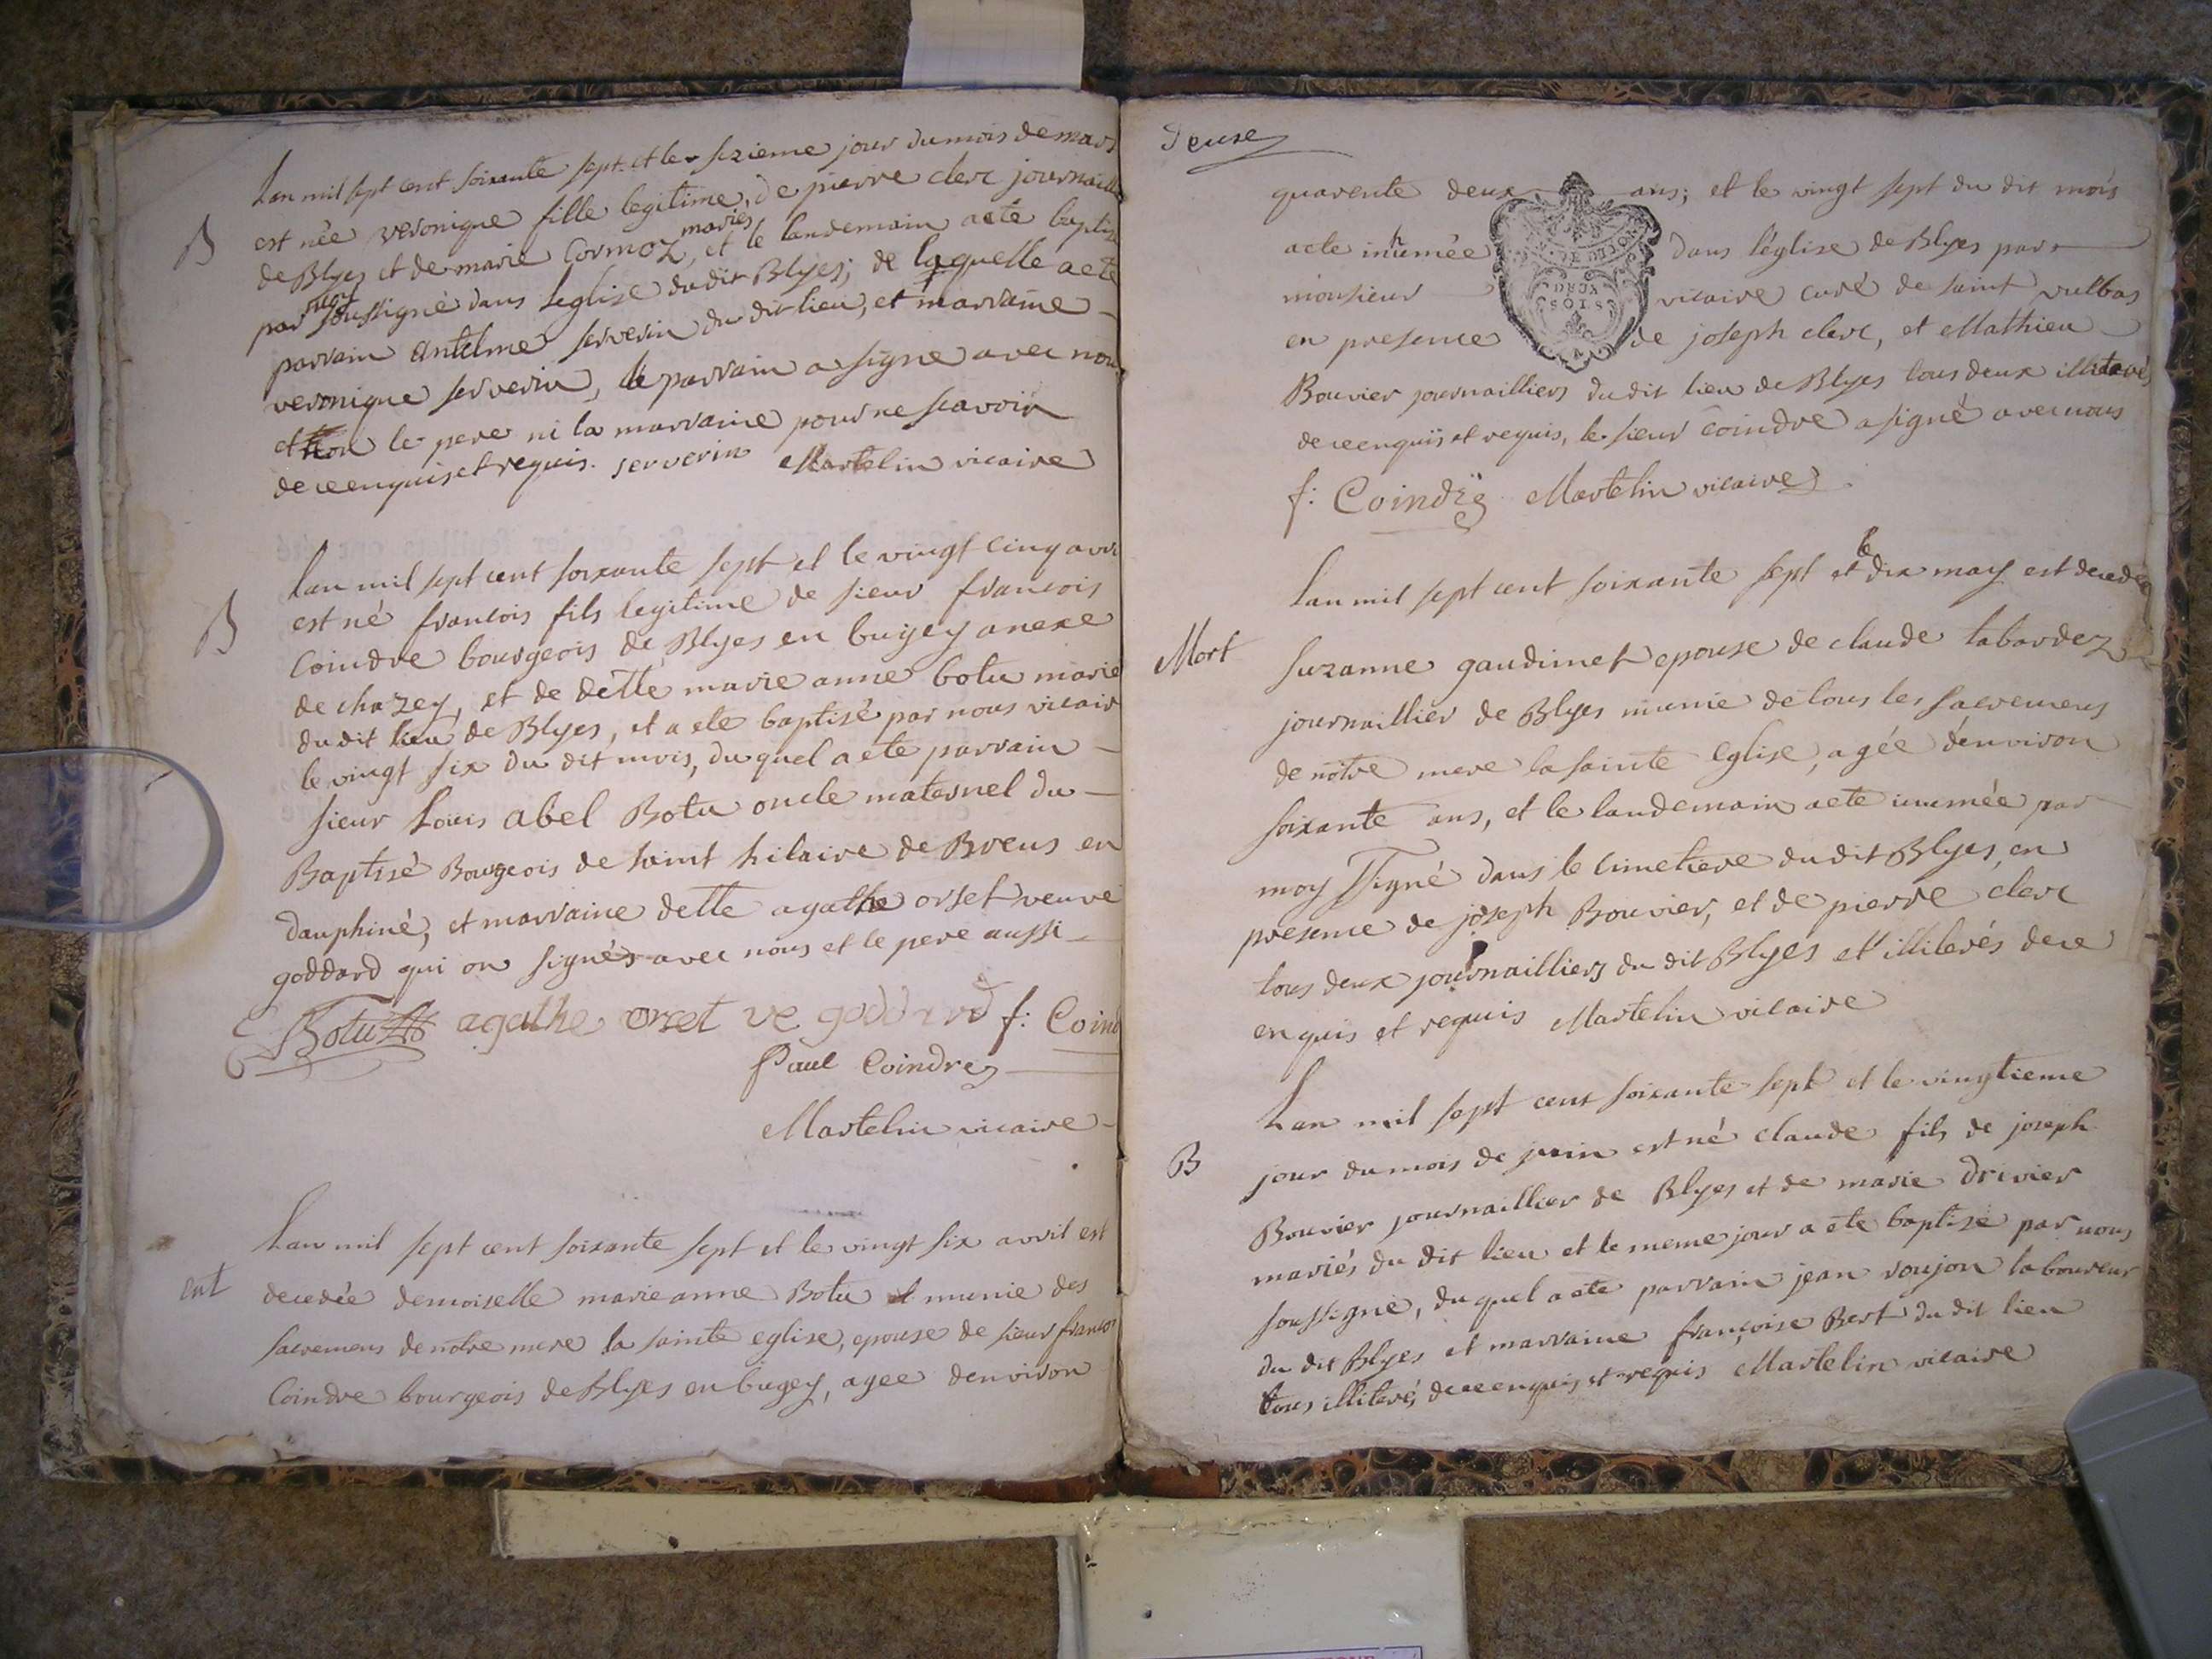 Lan mil sept cent soixante sept et le sezieme jour du mois de mars
B
est née veronique fille legitime, de pierre clerc journaillie
de Blyes et de marie Cormoz maries, et le landemain a eté baptise
par moy soussigné dans leglise du dit Blyes; de laquelle a eté
parrain antelme serverin du dit lieu, et marraine
veronique serverin, le parrain a signe avec nous
et non le pere ni la marraine pour ne scavoir
de ce enquis et requis. serverin Martelin vicaire
Lan mil sept cent soixante sept et le vingt cinq avri
B
est né francois fils legitime de sieur francois
Coindre bourgeois de Blyes en bugey anexe
de chazey, et de delle marie anne botu marie
du dit lieu de Blyes, et a ete baptisé par nous vicair
le vingt six du dit mois, du quel a ete parrain
sieur Louis abel Botu oncle maternel du
Baptisé Bourgeois de saint hilaire de Brens en
dauphiné, et marraine delle agathe orset veuve
goddard qui on signés avec nous et le pere aussi
Botu agathe orset ve goddard f: Coind
Paul Coindre
Martelin vicaire
Lan mil sept cent soixante sept et le vingt six avril est
ent
decedée demoiselle marie anne Botu munie des
sacremens de notre mere la sainte eglise, epouse de sieur francoi
Coindre bourgeois de Blyes en bugey, agee denviron
Deuse
quarente deux ans; et le vingt sept du dit mois
a ete inhumée dans l'église de Blyes par
monsieur vicaire curé de saint vulbas
en presence de joseph clerc, et Mathieu
DEUX
SOLS
Bouvier journailliers du dit lieu de Blyes tous deux illiterés
de ce enquis et requis, le sieur coindre a signé avec nous
f: Coindre Martelin vicaire
Lan mil sept cent soixante sept et le dix may est decedée
Mort
Suzanne gaudimet epouse de claude labardez
journaillier de Blyes munie de tous les sacremens
de nôtre mere la sainte Eglise, agée d'environ
soixante ans, et le landemain a ete inumée par
moy ssigné dans le cimetiere du dit Blyes, en
presence de joseph Bouvier, et de pierre clerc
tous deux journailliers du dit Blyes et illiterés de ce
enquis et requis Martelin vicaire
Lan mil sept cent soixante sept et le vingtieme
B
jour du mois de juin est né claude fils de joseph
Bouvier journaillier de Blyes et de marie drivier
mariés du dit lieu et le meme jour a ete baptise par nous
soussigné, du quel a ete parrain jean roujon laboureur
du dit Blyes et marraine françoise Bert du dit lieu
tous illiterés de ce enquis et requis Martelin vicaire